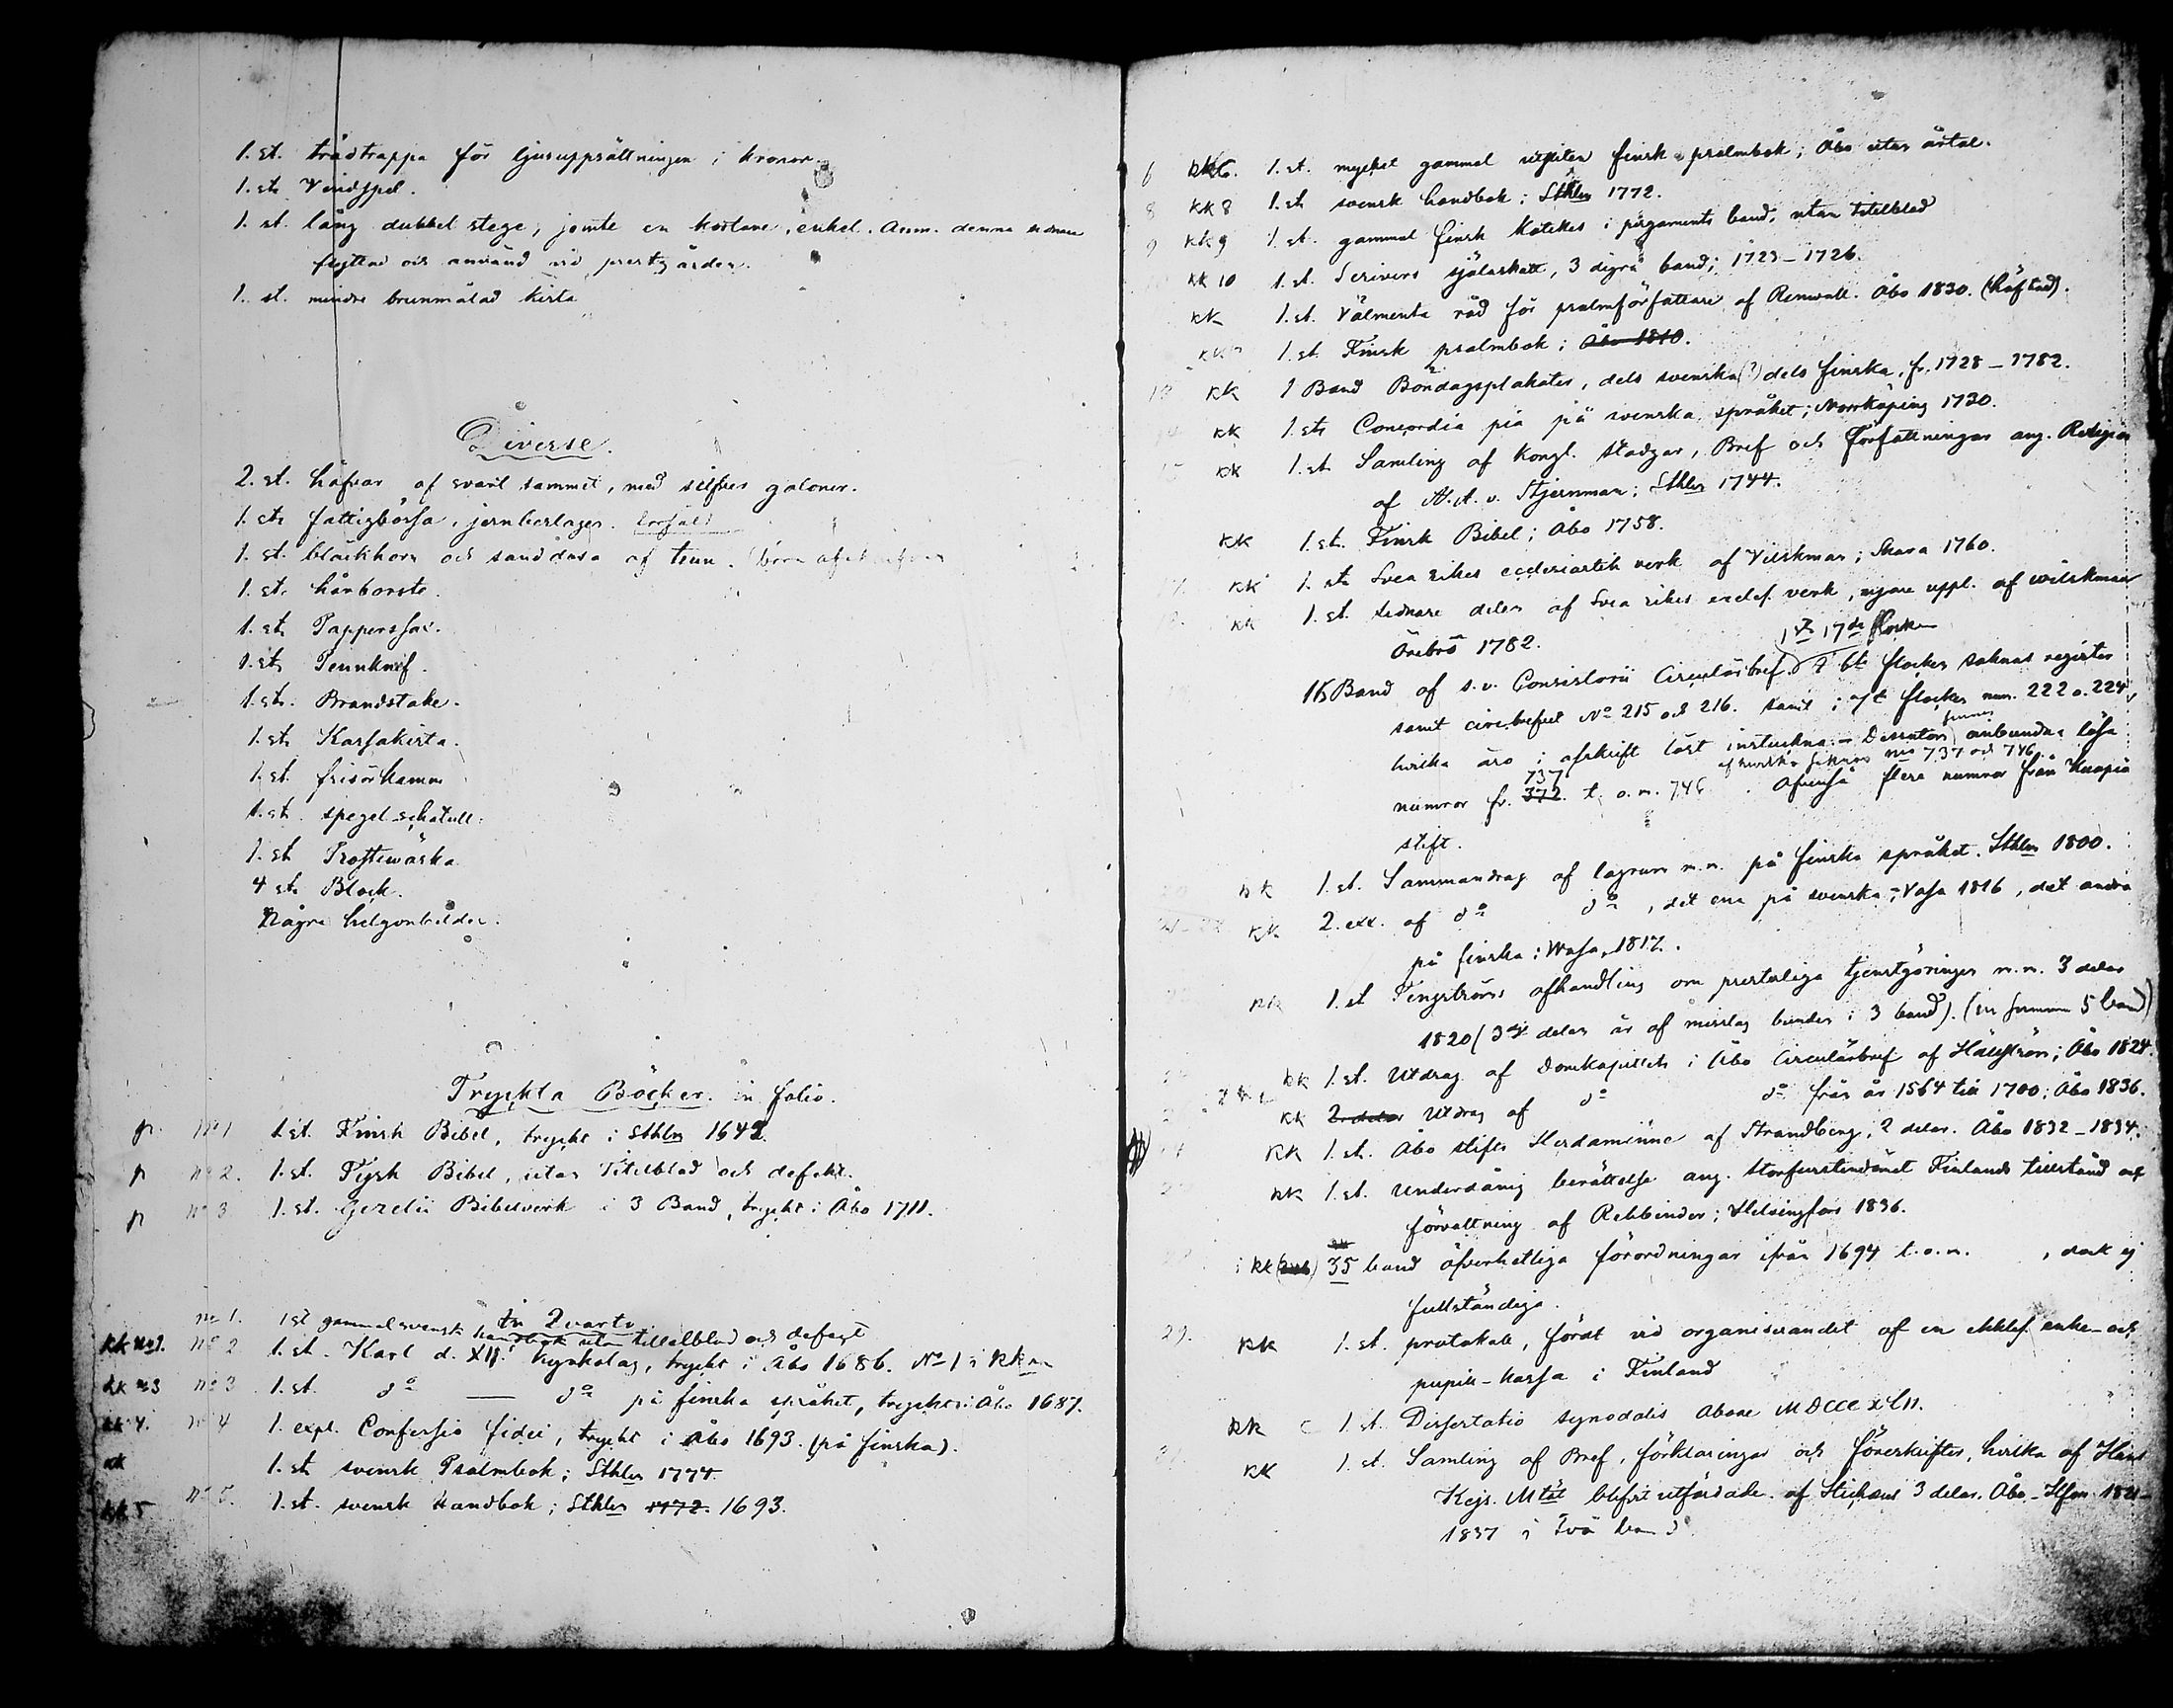 1. st. trådtrappa för ljusuppsättningen i kronor.
1. st. Vindspel.
1. st. lång dubbel stege, jemte en kortare, enkel. Anm. denna sednare
flyttad och använd vid prestgården.
1. st. mindre brunmålad kista
Diverse.
2. st. håfvar af svart sammet, med silfver galoner.
1. st. fattigbössa, jernbeslagen.
1. st. bläckhorn och sanddosa af tenn.
1. st. hårborste.
1. st. Papperssax.
1. st. Pennknif.
1. st. Brandstake.
1. st. Kassakista.
1. st. frisörkamm
1. st. spegel-schatull.
1. st.
4 st. Block.
Några helgonbilder.
Tryckta Böcker. in folio.
p. No 1 1. st. Finsk Bibel, tryckt i Sthlm 1642.
p No 2. 1. st. Tysk Bibel, utan Titelblad och defekt.
p No 3 1. st. Gezelii Bibelverk i 3 Band, tryckt i Åbo 1711.
in Quarto
No 1. 1 st gammal svensk handbok utan titelblad och defect
KK No 1. No 2 1. st. Karl d. XI:s kyrkolag, tryckt i Åbo 1686. No 1 i KK
KK No 3 No 3 1. st. do — do på finska språket, tryckt i Åbo 1687.
KK 4. No 4 1. expl. Confessio fidei, tryckt i Åbo 1693. (på finska).
KK 1. st. svensk Psalmbok; Sthlm 1774.
KK 5 No 5. 1. st. svensk Handbok; Sthlm 1772. 1693.
6 KK 6. 1. st. mycket gammal utsliten finsk psalmbok; Åbo utan årtal.
8 KK 8 1. st. svensk handbok; Sthlm 1772.
9 KK 9 1. st. gammal finsk katekes i pergaments band, utan titelblad
KK 10 1. st. Scrivers själaskatt, 3 digra band; 1723-1726.
KK 1. st. Välmenta råd för psalmförfattare af Renwall. Åbo 1830. (häftad).
KK 1. st. Finsk psalmbok; Åbo 1810.
13 KK 1 Band Böndagsplakater, dels svenska (?) dels finska, fr. 1728-1782.
14 KK 1. st. Concordia pia på svenska språket; Norrköping 1730.
15 KK 1. st. Samling af Kongl. stadgar, Bref och författningar ang. Religion
af A. A. v. Stjernman; Sthlm 1744.
KK 1. st. Finsk Bibel; Åbo 1758.
17. KK 1. st. Svea rikes ecclesiastik verk af Wilskman; Skara 1760.
KK 1. st. sednare delen af Svea rikes eccles. verk, nyare uppl. af Wilskman
Örebro 1782.
17de flocken
Band af s.v. Consistorii Circulärbref. flocken saknas register
samt circ.brefvet No 215 och 216. samt i 7e flocken num. 222 o. 224,
hvilka äro i afskrift löst instuckna. - Dessutom finnes anbundna lösa
af hvarska saknas No 737 och 746
numror fr. 372 737 t. o. m. 746. Afvenså flera numror från Kuopio
stift.
KK 1. st. Sammandrag af lagrum m.m. på finska språket. Sthlm 1800.
KK 2. exx. af do do, det ena på svenska; Vasa 1816, det andra
på finska; Wasa, 1817.
KK 1. st Tengströms afhandling om presterliga tjenstgöringen m.m. 3 delar
1820 (3dje delen är af misstag bunden i 3 band). (in summa 5 band)
KK 1. st. Utdrag af Domkapitlets i Åbo Circulärbref af Hällström; Åbo 1824.
KK 2. delar Utdrag af do do från år 1564 till 1700; Åbo 1836.
KK 1. st. Åbo stifts Herdaminne af Strandberg, 2 delar. Åbo 1832-1834.
KK 1. st. Underdånig berättelse ang. Storfurstendömet Finlands tillstånd och
förvaltning af Rehbinder; Helsingfors 1836.
i KK 35 band öfverhetliga förordningar ifrån 1694 t. o. m. , dock ej
fullständiga.
29. KK 1. st. protokoll, fördt vid organiserandet af en ekkles. enke- och
pupill-kassa i Finland
KK 1. st. Dissertatio synodalis Aboae MDCCCXLII.
KK 1. st. Samling af Bref, förklaringar och föreskrifter, hvilka af Hans
Kejs. Mtät blifvit utfärdade. af Stichæus 3 delar. Åbo-Hfors 1821-
1837 i Två band